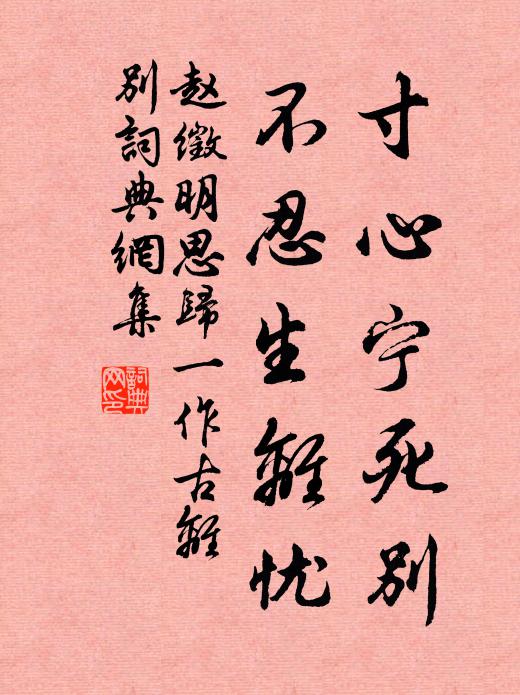 寸心宁死别
不忍生離忧
赵徵明思歸一作古離
别詞典網集
詞典网印